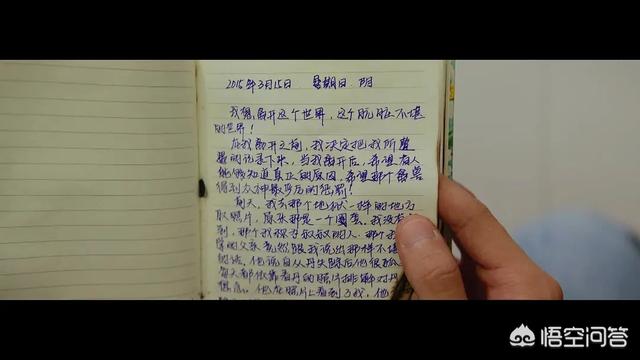 2015年3月15日 星期日 阴
我想离开这个世界，这个肮脏不堪
的世界！
在我离开之前，我决定把我所遭
的记录下来，当我离开后，希望有人
能够知道真正的原因，希望那个禽兽
得到众神最严厉的惩罚！
天，我去那个地狱一样的地方
取照片，原来那是一个圈套，我没有
到，那个我称为叔叔的人，那个
的父亲竟然跟我说出那样不堪
的话。他说自从丹失踪后他很孤
每天都依靠看丹的照片排解对丹
想念。他在照片上看到了我，他
悟空问答